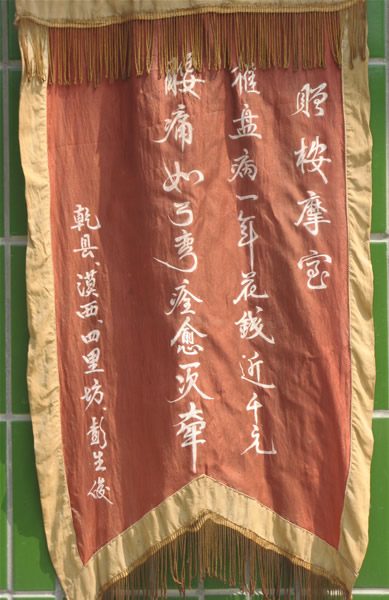 赠按摩室
椎盘病一年花钱近千元
腰痛如弓弯痊愈次牵
乾县、漠西、四里坊、彭生俊